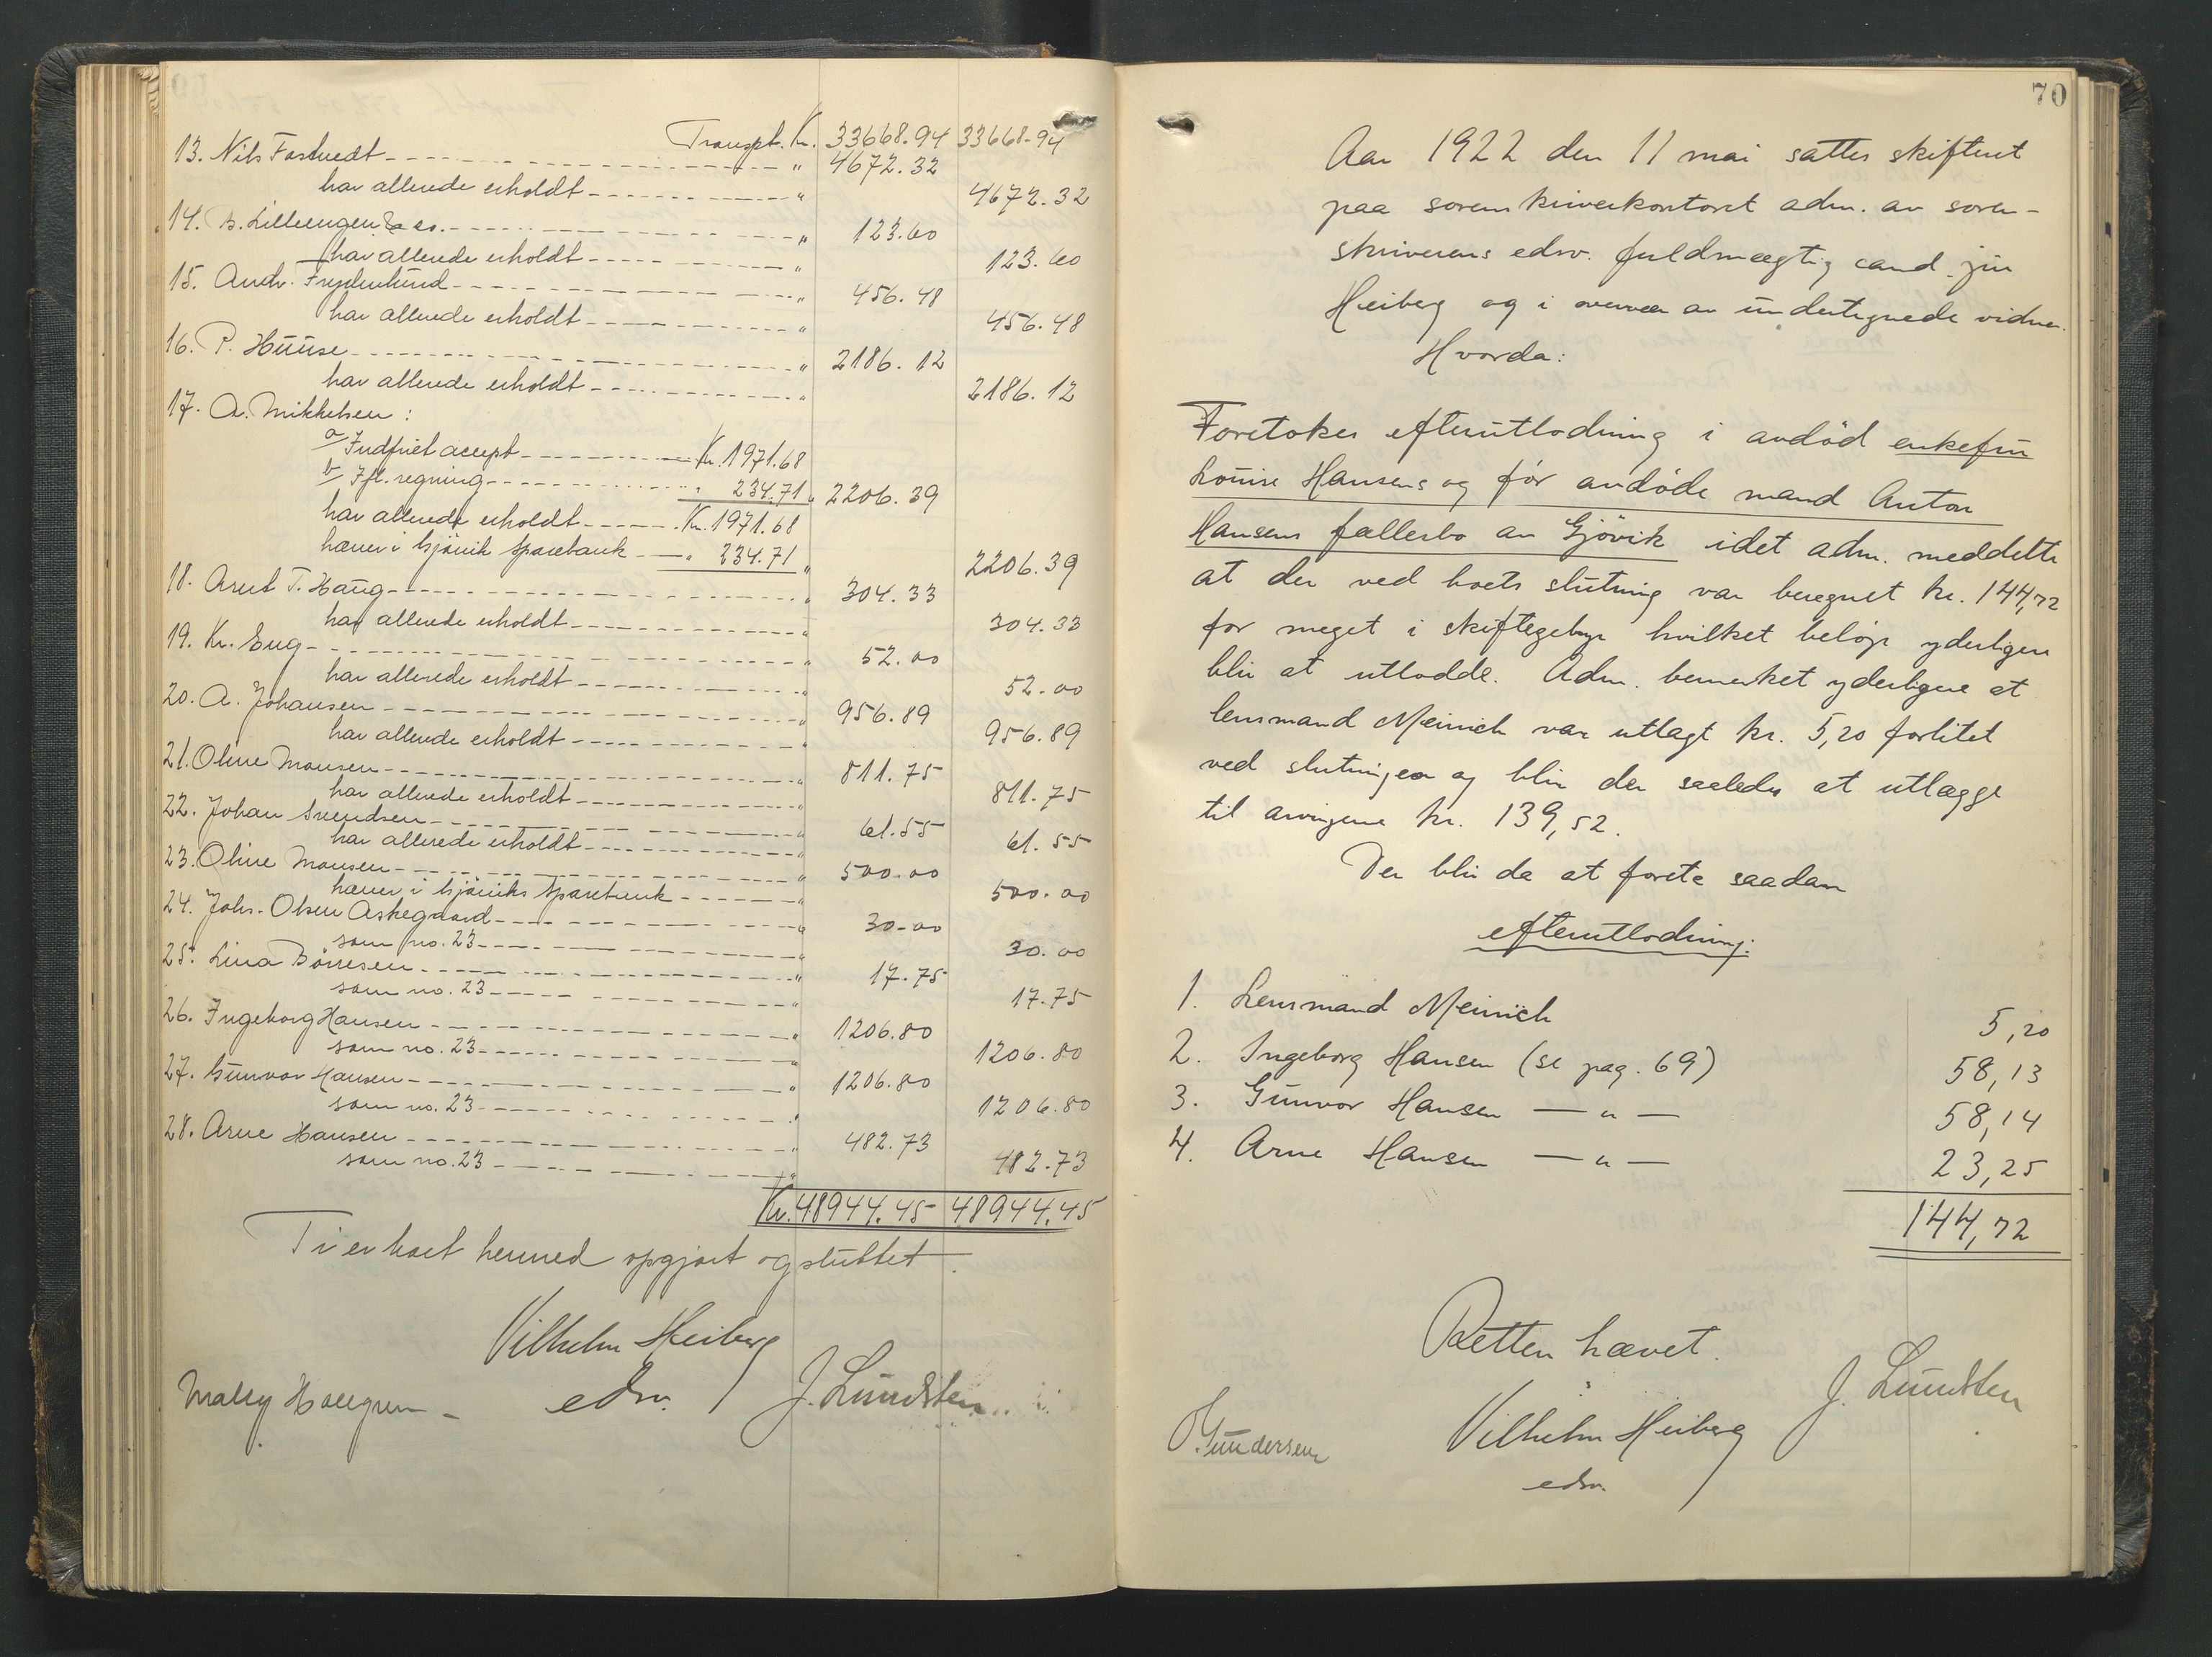 Transpt. Kr. 33668.94 33668.94
13. Nils Fostvedt " 4672.32
har allerede erholdt " 4672.32
14. B. Lilleengen & co. " 123.60
har allerede erholdt " 123.60
15. Andr. Frydenlund " 456.48
har allerede erholdt " 456.48
16. P. Huuse " 2186.12
har allerede erholdt " 2186.12
17. A. Mikkelsen:
a/ Indfriet accept Kr. 1971.68
b/ Ifl. regning " 234.71 " 2206.39
har allerede erholdt Kr. 1971.68
hæver i Gjøvik Sparebank " 234.71 " 2206.39
18. Arnt T. Haug " 304.33
har allerede erholdt " 304.33
19. Kr. Eng " 52.00
har allerede erholdt " 52.00
20. A. Johansen " 956.89
har allerede erholdt " 956.89
21. Oline Monsen " 811.75
har allerede erholdt " 811.75
22. Johan Svendsen " 61.55
har allerede erholdt " 61.55
23. Oline Monsen " 500.00
hæver i Gjøviks Sparebank " 500.00
24. Johs. Olsen Askegaard " 30.00
som no. 23 " 30.00
25. Lina Börresen " 17.75
som no. 23 " 17.75
26. Ingeborg Hansen " 1206.80
som no. 23 " 1206.80
27. Gunvor Hansen " 1206.80
som no. 23 " 1206.80
28. Arne Hansen " 482.73
som no. 23 " 482.73
Kr. 48944.45 48944.45
Ti er boet hermed opgjort og sluttet.
Vilhelm Heiberg
edsv.
J. Lundsten
70
Aar 1922 den 11 mai sattes skifteret
paa sorenskriverkontoret adm. av soren-
skriverens edsv. fuldmægtig cand. jur
Heiberg og i overvær av undertegnede vidner.
Hvorda:
Foretokes efterutlodning i avdød enkefru
Louise Hansens og før avdøde mand Anton
Hansens fællesbo av Gjövik idet adm. meddelte
at der ved boets slutning var beregnet kr. 144,72
for meget i skiftegebyr hvilket beløp yderligere
blir at utlodde. Adm. bemerket yderligere at
lensmand Meinich var utlagt kr. 5,20 forlitet
ved slutningen og blir der saaledes at utlægge
til arvingene kr. 139,52.
Der blir da at foreta saadan
efterutlodning:
1. Lensmand Meinich 5,20
2. Ingeborg Hansen (se pag. 69) 58,13
3. Gunvor Hansen — " — 58,14
4. Arne Hansen — " — 23,25
144,72
Retten hævet.
J. Lundsten
Gundersen
Vilhelm Heiberg
edsv.